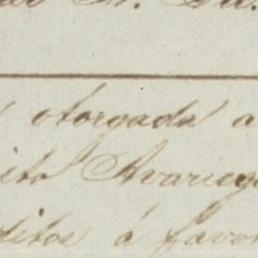 otorgada a
ito Avarieg
ditos á favor